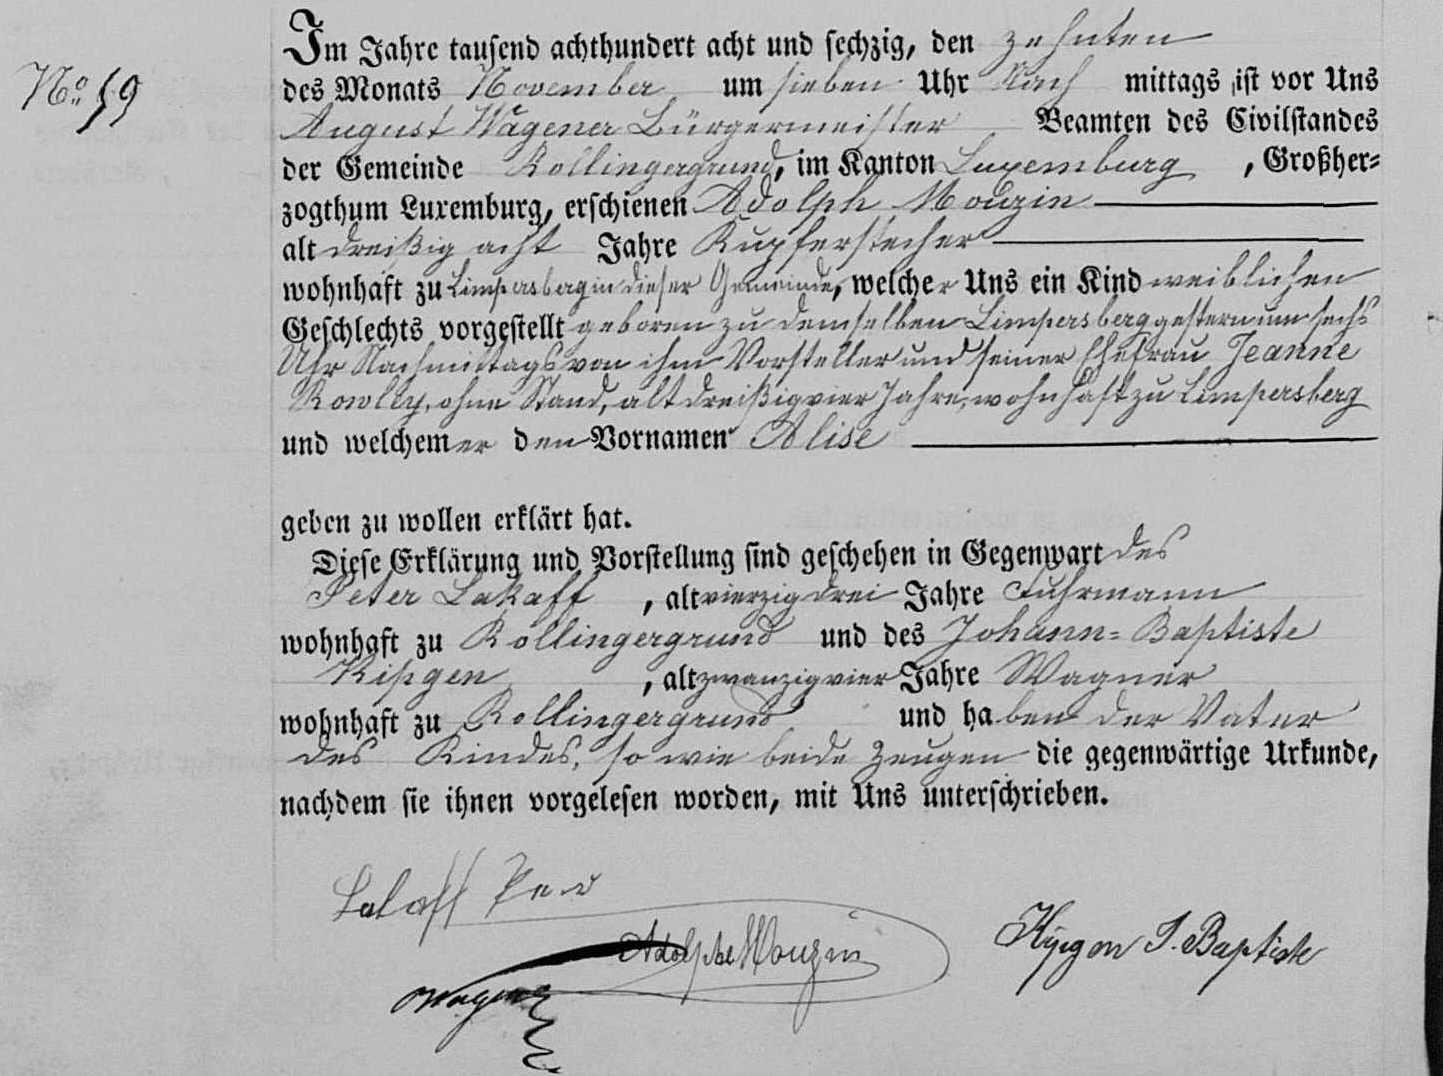 Nº 59
Im Jahre tausend achthundert acht und sechzig, den zehnten
des Monats November um sieben Uhr Nach mittags ist vor Uns
August Wagener Bürgermeister Beamten des Civilstandes
der Gemeinde Rollingergrund, im Kanton Luxemburg, Großher=
zogthum Luxemburg, erschienen Adolph Mouzin
alt dreißig acht Jahre Kupferstecher
wohnhaft zu Limpersberg in dieser Gemeinde, welcher Uns ein Kind weiblichen
Geschlechts vorgestellt geboren zu demselben Limpersberg gestern um sechs
Uhr Nachmittags von ihm Vorsteller und seiner Ehefrau Jeanne
Rowley, ohne Stand, alt dreißig vier Jahre, wohnhaft zu Limpersberg
und welchem er den Vornamen Alise
geben zu wollen erklärt hat.
Diese Erklärung und Vorstellung sind geschehen in Gegenwart des
Peter Lakaff, alt vierzig drei Jahre Fuhrmann
wohnhaft zu Rollingergrund und des Johann=Baptiste
Kipgen, alt zwanzig vier Jahre Wagner
wohnhaft zu Rollingergrund und haben der Vater
des Kindes, so wie beide Zeugen die gegenwärtige Urkunde,
nachdem sie ihnen vorgelesen worden, mit Uns unterschrieben.
Lakaff
Adolphe Mouzin
Kipgen J. Baptiste
Wagener